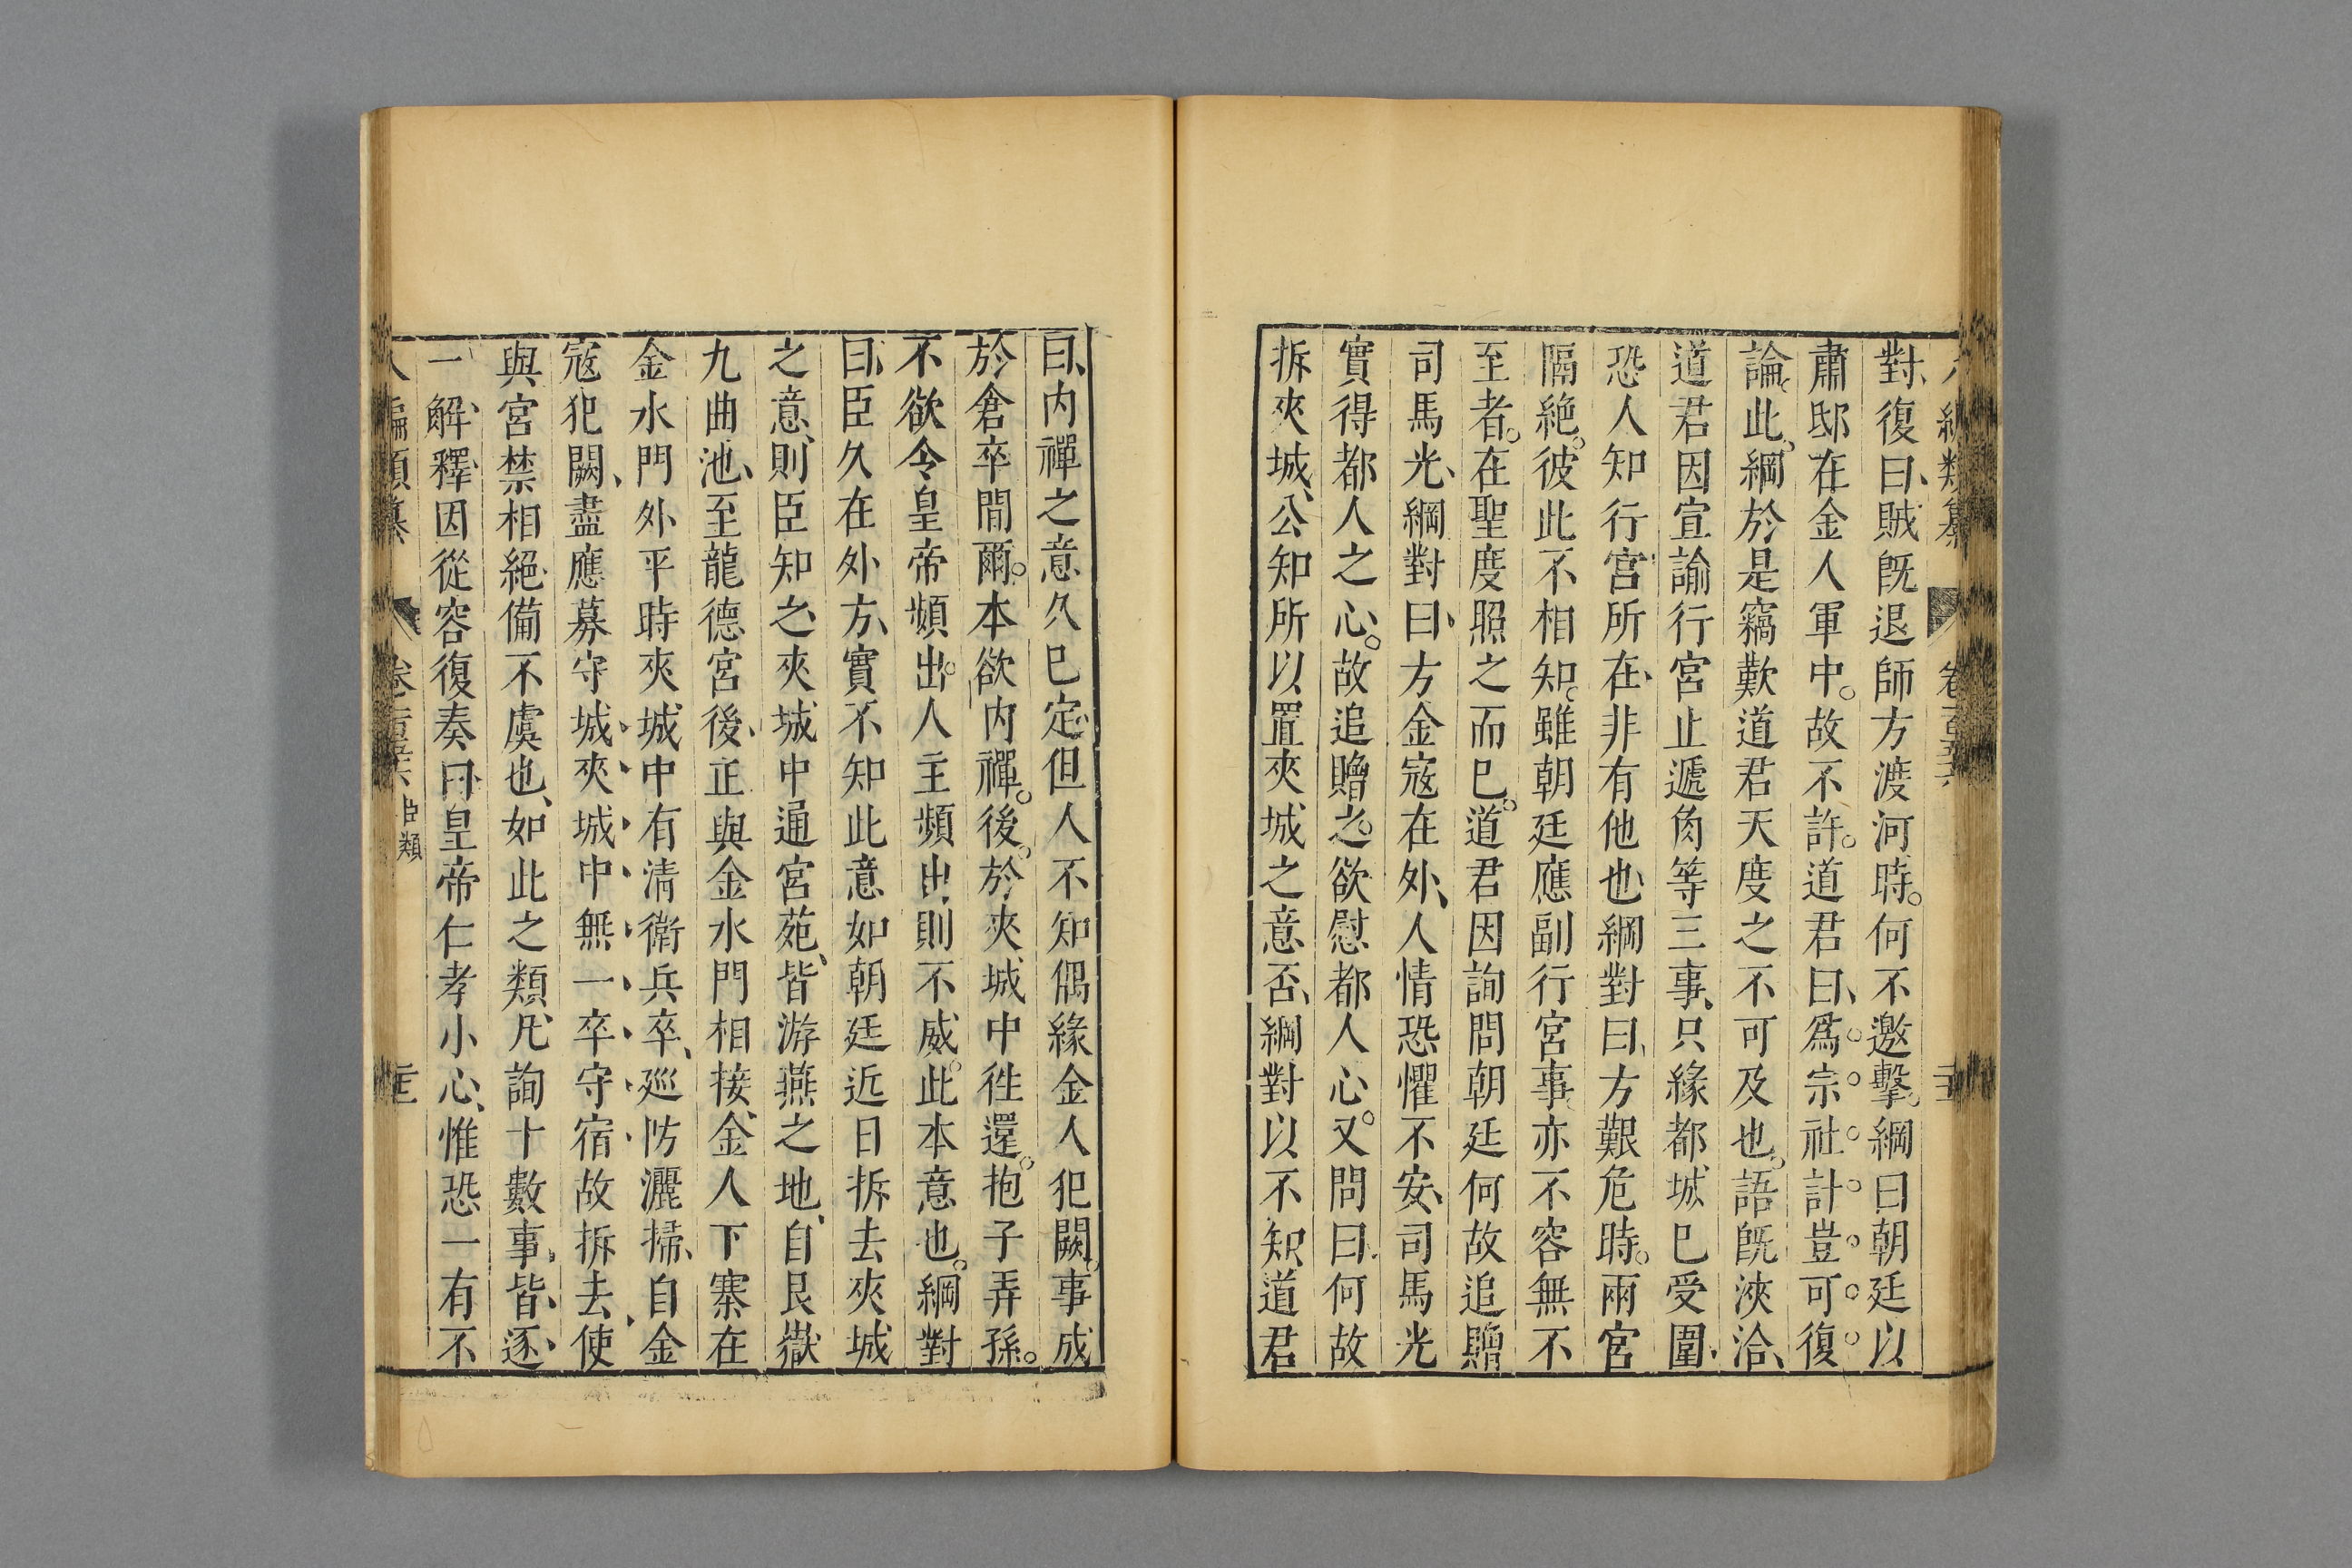 對復曰賊旣退師方渡河時何不邀擊綱曰朝廷以
肅邸在金人軍中故不許道君曰爲宗社計豈可復
論此綱於是竊歎道君天度之不可及也語旣浹洽
道君因宣諭行宮止遞角等三事只緣都城已受圍
恐人知行宮所在非有他也綱對曰方艱危時兩宮
隔絶彼此不相知雖朝廷應副行宮事亦不容無不
至者在聖度照之而已道君因詢問朝廷何故追贈
司馬光綱對曰方金寇在外人情恐懼不安司馬光
實得都人之心故追贈之欲慰都人心又問曰何故
拆夾城公知所以置夾城之意否綱對以不知道君
曰内禪之意久已定但人不知偶緣金人犯闕事成
於倉卒間爾本欲内禪後於夾城中徃還抱子弄孫
不欲令皇帝頻出人主頻出則不威此本意也綱對
曰臣久在外方實不知此意如朝廷近日拆去夾城
之意則臣知之夾城中通宮苑皆游燕之地自艮嶽
九曲池至龍德宮後正與金水門相接金人下寨在
金水門外平時夾城中有清衛兵卒廵防灑掃自金
寇犯闕盡應募守城夾城中無一卒守宿故拆去使
與宮禁相絕備不虞也如此之類凡詢十數事皆逐
一解釋因從容復奏曰皇帝仁孝小心惟恐一有不
臣類